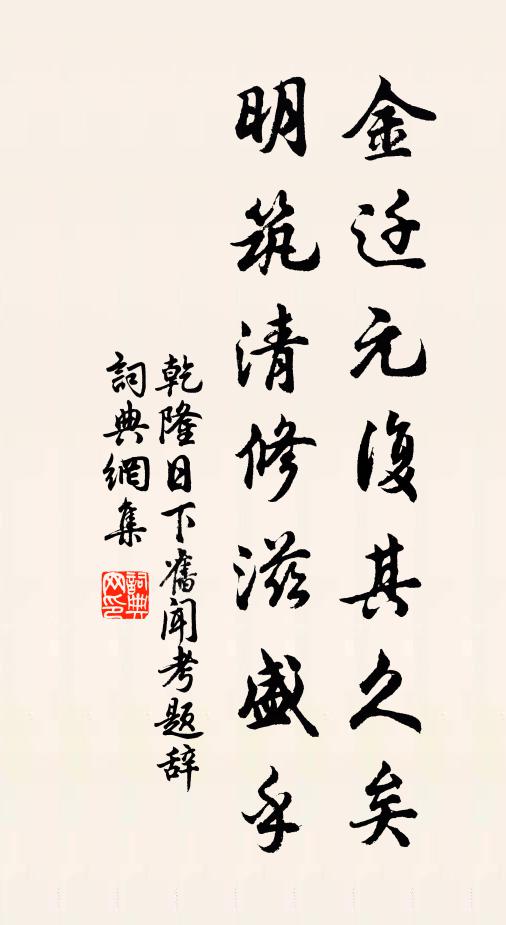 金迁元復其久矣
明筑清修滋盛乎
乾隆日下舊聞考題辞
詞典網集
詞典网印